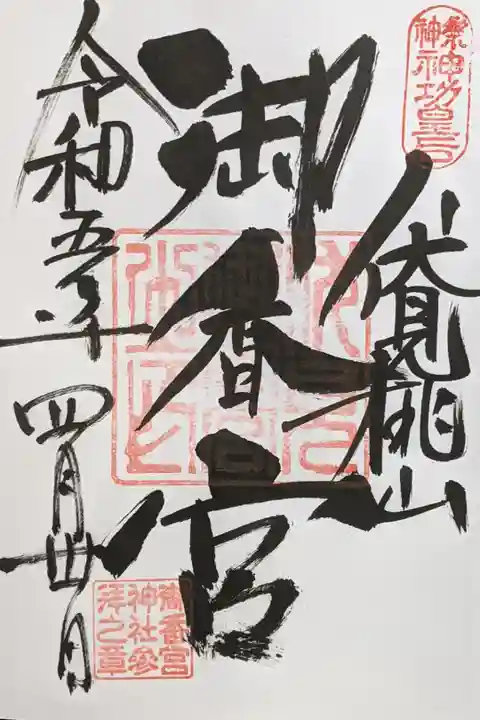 祭神
神功皇后
伏見桃山
御香宮
令和五年四月卅日
御香宮
神社參
拜之章